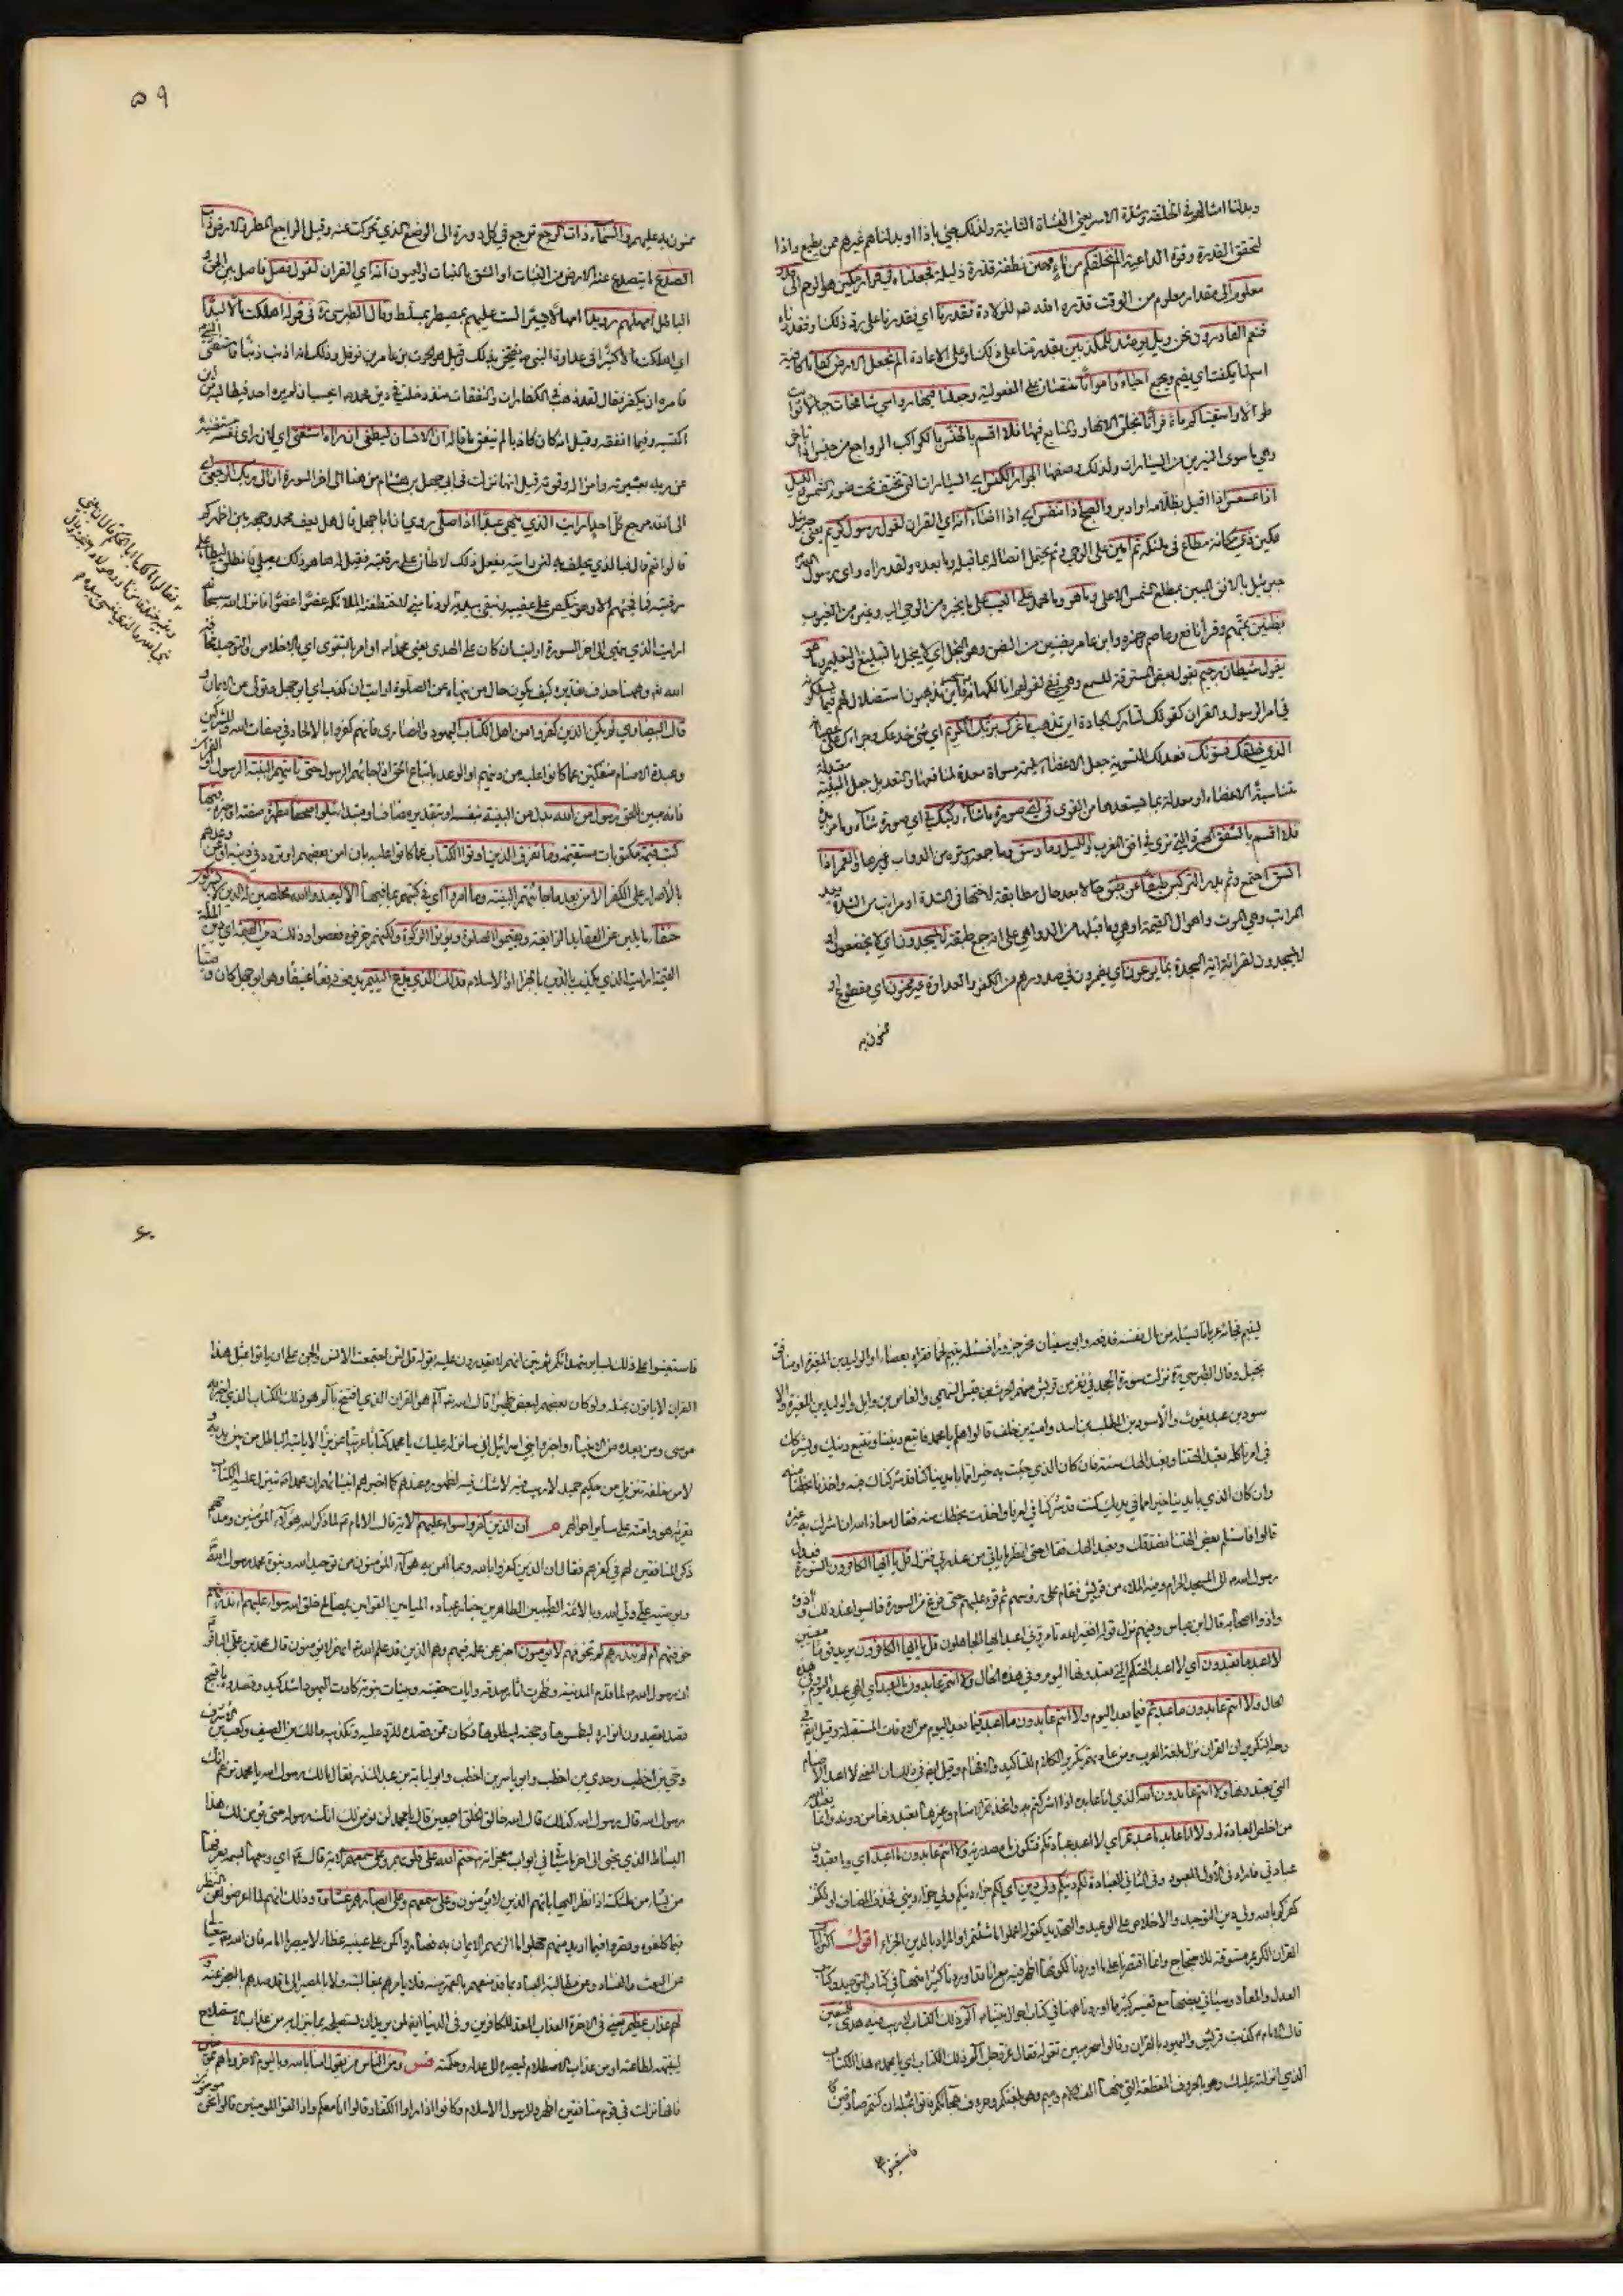 وبدلنا امثالهم في الخلقة وشدة الاسر يعني النشأة الثانية ولذلك جيئ باذا او بدلناهم غيرهم ممن يطيع واذا
لتحقق القدرة وقوة الداعية الم نخلقكم من ماء مهين نطفة قذرة ذليلة فجعلناه في قرار مكين هو الرحم الى قدر
معلوم الى مقدار معلوم من الوقت قدره الله للولادة فقدرنا اي فقدرنا على ذلك او فقدرناه
فنعم القادرون نحن ويل يومئذ للمكذبين بقدرتنا على ذلك او على الاعادة الم نجعل الارض كفاتا كافتة
اسم لما يكفت اي يضم ويجمع احياء وامواتا منتصبان على المفعولية وجعلنا فيها رواسي شامخات جبالا ثوابت
طوالا واسقيناكم ماء فراتا بخلق الانهار والمنابع فيها فلا اقسم بالخنس بالكواكب الرواجع من خنس اذا تاخر
وهي ما سوى النيرين من السيارات ولذلك وصفها الجوار الكنس اي السيارات التي تختفي تحت ضوء الشمس والليل
اذا عسعس اذا اقبل بظلامه او ادبر والصبح اذا تنفس اي اذا اضاء انه اي القران لقول رسول كريم يعني جبرئيل
مكين ذي مكانة مطاع في ملئكته ثم امين على الوحي وثم يحتمل اتصاله بما قبله وما بعده ولقد راه راى رسول الله
جبرئيل بالافق المبين بمطلع الشمس الاعلى وما هو وما محمد على الغيب على ما يخبره من الوحي اليه وغيره من الغيوب
بظنين بمتهم وقرأ نافع وعاصم وحمزة وابن عامر بضنين من الضن وهو البخل اي لا يبخل بالتبليغ والتعليم وما هو
بقول شيطان رجيم بقول بعض المسترقة للسمع وهي نفي لقولهم انه لكهانة فاين تذهبون استضلال لهم فيما يسلكونه
في امر الرسول والقران كقولك لتارك الجادة اين تذهب ما غرك بربك الكريم اي شيء خدعك وجراك على عصيانه
الذي خلقك فسويك فعدلك التسوية جعل الاعضاء سليمة مسواة معدة لمنافعها والتعديل جعل البنية معتدلة
متناسبة الاعضاء او معدلة بما يستعدها من القوى في اي صورة ما شاء ركبك في اي صورة شاء وما مزيدة
فلا اقسم بالشفق الحمرة التي ترى في افق المغرب والليل وما وسق وما جمعه وستره من الدواب وغيرها والقمر اذا
اتسق اجتمع وتم بدرا لتركبن طبقا عن طبق حالا بعد حال مطابقة لاختها في الشدة او مراتب من الشدة بعد
المراتب وهي الموت واهوال القيمة او هي وما قبلها من الدواهي على انه جمع طبقة لا يسجدون اي لا يخضعون او
لا يسجدون لقرائة اية السجدة بما يوعون اي يضمرون في صدورهم من الكفر والعداوة غير ممنون اي مقطوع او
ممنون به
۵۹
ممنون به عليهم والسماء ذات الرجع ترجع في كل دورة الى الوضع الذي تحركت عنه وقيل الرجع المطر والارض ذات
الصدع ما يتصدع عنه الارض من النبات او الشق بالنبات والعيون انه اي القران لقول فصل فاصل بين الحق و
الباطل امهلهم رويدا امهالا يسيرا لست عليهم بمصيطر بمسلط وقال الطبرسي ره في قوله اهلكت مالا لبدا
اي اهلكت مالا كثيرا في عداوة النبي ص يفتخر بذلك قيل هو الحرث بن عامر بن نوفل وذلك انه اذنب ذنبا فاستفتى النبي
فامره ان يكفر فقال لقد ذهب مالي في الكفارات والنفقات منذ دخلت في دين محمد ايحسب ان لم يره احد فيطالبه من اين
اكتسبه وفيما انفقه وقيل انه كان كاذبا لم ينفق ما قاله ان الانسان ليطغى ان راه استغنى اي لان راى نفسه مستغنية
عن ربه بعشيرته وامواله وقوته قيل انها نزلت في ابي جهل بن هشام من هنا الى اخر السورة ان الى ربك الرجعى اي
الى الله مرجع كل احد ارايت الذي ينهى عبدا اذا صلى روي ان ابا جهل قال هل يعفر محمد وجهه بين اظهركم
قالوا نعم قال فبالذي يحلف به لئن رايته يفعل ذلك لاطان على رقبته فقيل له ها هو ذلك يصلي فانطلق ليطأ على
رقبته فما فجئهم الا وهو ينكص على عقبيه ويتقي بيديه لو دنا مني لاختطفته الملائكة عضوا عضوا فانزل الله سبحانه
ارايت الذي ينهى الى اخر السورة ارايت ان كان على الهدى يعني محمدا او امر بالتقوى اي بالاخلاص والتوحيد ومخافة
الله وههنا حذف تقديره كيف يكون حال من ينهاه عن الصلوة ارايت ان كذب اي ابو جهل وتولى عن الايمان و
قال البيضاوي لم يكن الذين كفروا من اهل الكتاب اليهود والنصارى فانهم كفروا بالالحاد في صفات الله والمشركين
وعبدة الاصنام منفكين عما كانوا عليه من دينهم او الوعد باتباع الحق اذا جائهم الرسول حتى تاتيهم البينة الرسول او القران
فانه مبين للحق رسول من الله بدل من البينة بنفسه او بتقدير مضاف او مبتدا يتلوا صحفا مطهرة صفته او خبره فيها
كتب قيمة مكتوبات مستقيمة وما تفرق الذين اوتوا الكتاب عما كانوا عليه بان امن بعضهم او تردد في دينه او عن وعدهم
بالاصرار على الكفر الا من بعد ما جائتهم البينة وما امروا اي في كتبهم بما فيها الا ليعبدوا الله مخلصين له الدين لا يشركون
حنفاء مايلين عن العقايد الزائغة ويقيموا الصلوة ويؤتوا الزكوة ولكنهم حرفوه فعصوا وذلك دين القيمة اي دين الملة
القيمة ارايت الذي يكذب بالدين بالجزاء او الاسلام فذلك الذي يدع اليتيم يدفعه دفعا عنيفا وهو ابو جهل كان وصيا
ليتيم فجائه عريانا يسئله من مال نفسه فدفعه وابو سفيان نحر جزورا فسئله يتيم لحما فقرعه بعصاه او الوليد بن المغيرة او منافق
بخيل وقال الطبرسي ره نزلت سورة الجحد في نفر من قريش منهم الحرث بن قيس السهمي والعاص بن وايل والوليد بن المغيرة والا
سود بن عبد يغوث والاسود بن المطلب بن اسد وامية بن خلف قالوا هلم يا محمد فاتبع ديننا ونتبع دينك ونشركك
في امرنا كله تعبد الهتنا ونعبد الهك سنة فان كان الذي جئت به خيرا مما بايدينا كنا قد شركناك فيه واخذنا بحظنا منه
وان كان الذي بايدينا خيرا مما في يديك كنت قد شركتنا في امرنا واخذت بحظك منه فقال معاذ الله ان اشرك به غيره
قالوا فاستلم بعض الهتنا نصدقك ونعبد الهك فقال حتى انظر ما ياتي من عند ربي فنزل قل يا ايها الكافرون السورة فعدل
رسول الله ص الى المسجد الحرام وفيه الملاء من قريش فقام على رؤسهم ثم قرء عليهم حتى فرغ من السورة فايسوا عند ذلك فاذوه
واذوا اصحابه قال ابن عباس وفيهم نزل قوله افغير الله تامروني اعبد ايها الجاهلون قل يا ايها الكافرون يريد قوما معينين
لا اعبد ما تعبدون اي لا اعبد الهتكم التي تعبدونها اليوم وفي هذه الحال ولا انتم عابدون ما اعبد اي الهي عبده اليوم وفي هذه
الحال ولا انا عابد ما عبدتم فيما بعد اليوم ولا انتم عابدون ما اعبد فيما بعد اليوم من الاوقات المستقبلة وقيل ايضا في
وجه التكرير ان القران نزل بلغة العرب ومن عادتهم تكرير الكلام للتاكيد والافهام وقيل ايضا في ذلك ان المعنى لا اعبد الاصنام
التي تعبدونها ولا انتم عابدون الله الذي انا عابده اذا اشركتم به واتخذتم الاصنام وغيرها تعبدونها من دونه وانما يعبد الله
من اخلص العبادة له ولا انا عابد ما عبدتم اي لا اعبد عبادتكم فتكون ما مصدرية ولا انتم عابدون ما اعبد اي وما تعبدون
عبادتي فاراد في الاول المعبود وفي الثاني العبادة لكم دينكم ولي دين اي لكم جزاء دينكم ولي جزاء ديني فحذف المضاف او لكم
كفركم بالله ولي دين التوحيد والاخلاص على الوعيد والتهديد كقوله اعملوا ما شئتم او المراد بالدين الجزاء اقول اكثر ايات
القران الكريم مسوقة للاحتجاج وانما اقتصرنا على ما اوردنا لكونها اظهر فيه مع انا قد اوردنا كثيرا منها في كتاب التوحيد وكتاب
العدل والمعاد وسياتي بعضها مع تفسير كثير مما اوردنا ههنا في كتاب احوال نبينا ص م الم ذلك الكتاب لا ريب فيه هدى للمتقين
قال الامام ع كذبت قريش واليهود بالقران وقالوا سحر مبين تقوله فقال عز وجل الم ذلك الكتاب اي يا محمد هذا الكتاب
الذي انزلته عليك وهو بالحروف المقطعة التي منها الف لام وميم وهو بلغتكم وحروف هجائكم فاتوا بمثله ان كنتم صادقين
فاستعينوا
۶۰
فاستعينوا على ذلك بساير شهدائكم ثم بين انهم لا يقدرون عليه بقوله قل لئن اجتمعت الانس والجن على ان ياتوا بمثل هذا
القران لا ياتون بمثله ولو كان بعضهم لبعض ظهيرا قال الله عز وجل الم هو القران الذي افتتح بالم هو ذلك الكتاب الذي اخبرت به
موسى ومن بعده من الانبياء واخبروا بني اسرائيل اني سانزله عليك يا محمد كتابا عربيا عزيزا لا ياتيه الباطل من بين يديه و
لا من خلفه تنزيل من حكيم حميد لا ريب فيه لا شك فيه لظهوره عندهم كما اخبرهم انبيائهم ان محمدا ينزل عليه الكتاب
يقرئه هو وامته على ساير احوالهم م ان الذين كفروا سواء عليهم الاية قال الامام ع لما ذكر الله هؤلاء المؤمنين ومدحهم
ذكر المنافقين لهم في كفرهم فقال ان الذين كفروا بالله وبما امن به هؤلاء المؤمنون من توحيد الله ونبوة محمد رسول الله
وبوصيه علي ولي الله وبالائمة الطيبين الطاهرين خيار عباده الميامين القوامين بمصالح خلق الله سواء عليهم ءانذرتهم
خوفتهم ام لم تنذرهم لم تخوفهم لا يؤمنون اخبر عن علمه فيهم وهم الذين قد علم الله عز وجل انهم لا يؤمنون قال محمد بن علي الباقر
ان رسول الله ص لما قدم المدينة وظهرت اثار صدقه وايات حقيته وبينات نبوته كادت اليهود اشد كيد وقصدوه اقبح
قصد يقصدون انواره ليطمسوها وحجته ليبطلوها فكان ممن قصده للرد عليه وتكذيبه مالك بن الصيف وكعب بن الاشرف
وحيي بن اخطب وجدي بن اخطب وابو ياسر بن اخطب وابو لبابة بن عبد المنذر فقال مالك لرسول الله يا محمد تزعم انك
رسول الله قال رسول الله كذلك قال الله خالق الخلق اجمعين قال يا محمد لن نؤمن لك انك رسوله حتى يؤمن لك هذا
البساط الذي تحتي الى اخر ما سياتي في ابواب معجزاته ختم الله على قلوبهم وعلى سمعهم الاية قال ع اي وسمها بسمة يعرفها
من يشاء من ملئكته اذا نظر اليها بانهم الذين لا يؤمنون وعلى سمعهم وعلى ابصارهم غشاوة وذلك انهم لما اعرضوا عن النظر
فيما كلفوه وقصروا فيما اريد منهم جهلوا ما لزمهم الايمان به فصاروا كمن على عينيه غطاء لا يبصر امامه فان الله عز وجل يتعالى
عن العبث والفساد وعن مطالبة العباد بما قد منعهم بالقهر منه فلا يامرهم بمغالبته ولا بالمصير الى ما قد صدهم بالعجز عنه و
لهم عذاب عظيم يعني في الاخرة العذاب المعد للكافرين وفي الدنيا ايضا لمن يريد ان يستصلحه بما ينزل به من عذاب الاستصلاح
لينبهه لطاعته او من عذاب الاصطلام ليصيره الى عدله وحكمته فس ومن الناس من يقول امنا بالله وباليوم الاخر وما هم بمؤمنين
فانها نزلت في قوم منافقين اظهروا لرسول الاسلام وكانوا اذا راوا الكفار قالوا انا معكم واذا لقوا المؤمنين قالوا نحن مؤمنون